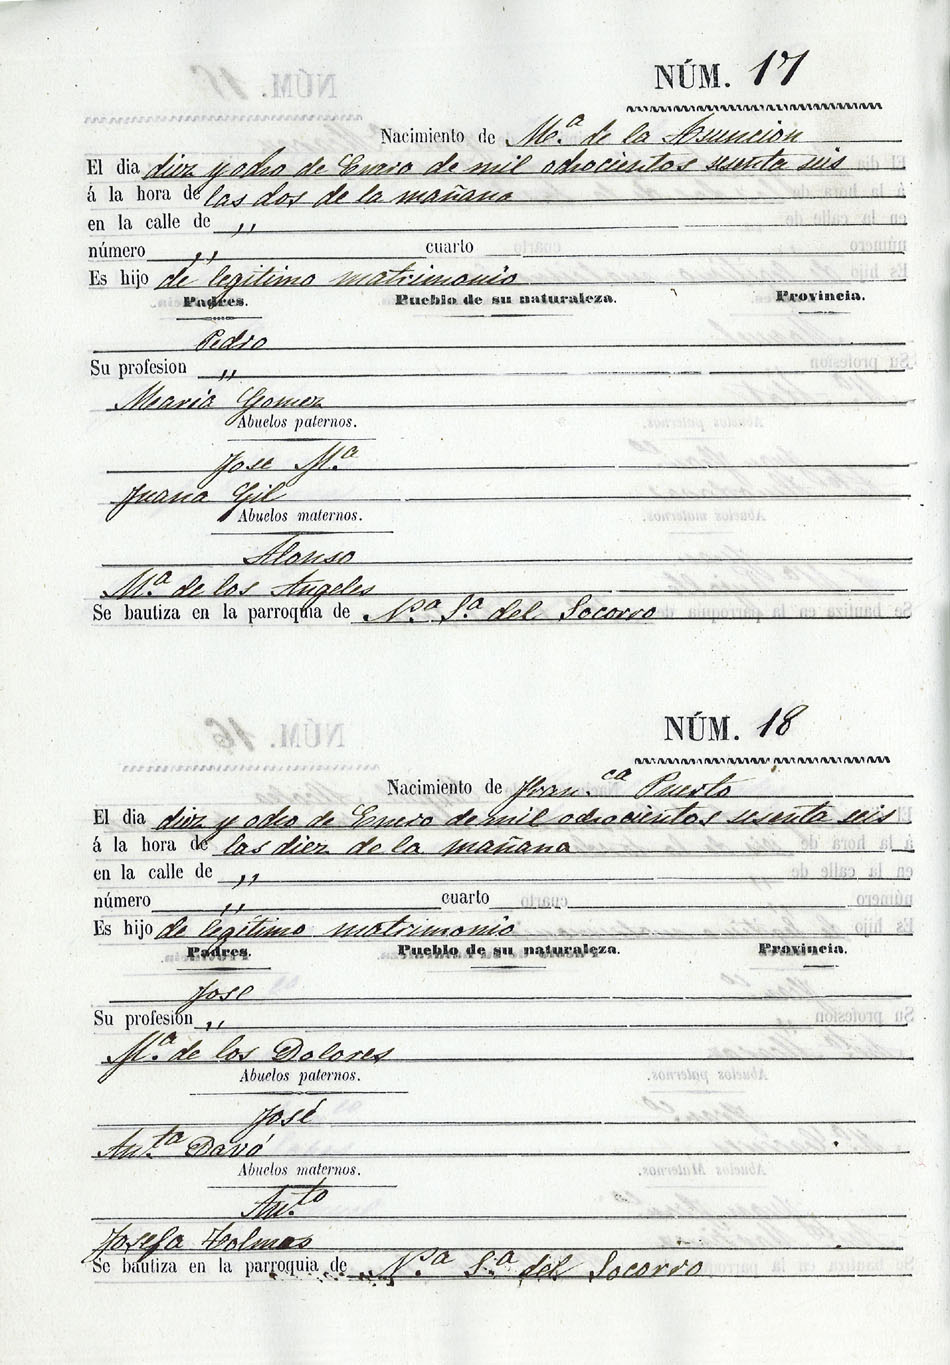 NÚM. 17
Nacimiento de Mª de la Asuncion
El dia diez y ocho de Enero de mil ochocientos sesenta seis
á la hora de las dos de la mañana
en la calle de ,,
número ,, cuarto
Es hijo de legitimo matrimonio
Padres. Pueblo de su naturaleza. Provincia.
Pedro
Su profesion ,,
Maria Gomez
Abuelos paternos.
Jose Mª
Juana Gil
Abuelos maternos.
Alonso
Mª de los Angeles
Se bautiza en la parroquia de Nª Sª del Socorro
NÚM. 18
Nacimiento de Fran.ca Puerto
El dia diez y ocho de Enero de mil ochocientos sesenta seis
á la hora de las diez de la mañana
en la calle de ,,
número ,, cuarto
Es hijo de legítimo matrimonio
Padres. Pueblo de su naturaleza. Provincia.
Jose
Su profesión ,,
Mª de los Dolores
Abuelos paternos.
José
Ant.ta Davó
Abuelos maternos.
Ant.to
Josefa
Se bautiza en la parroquia de Nª Sª del Socorro